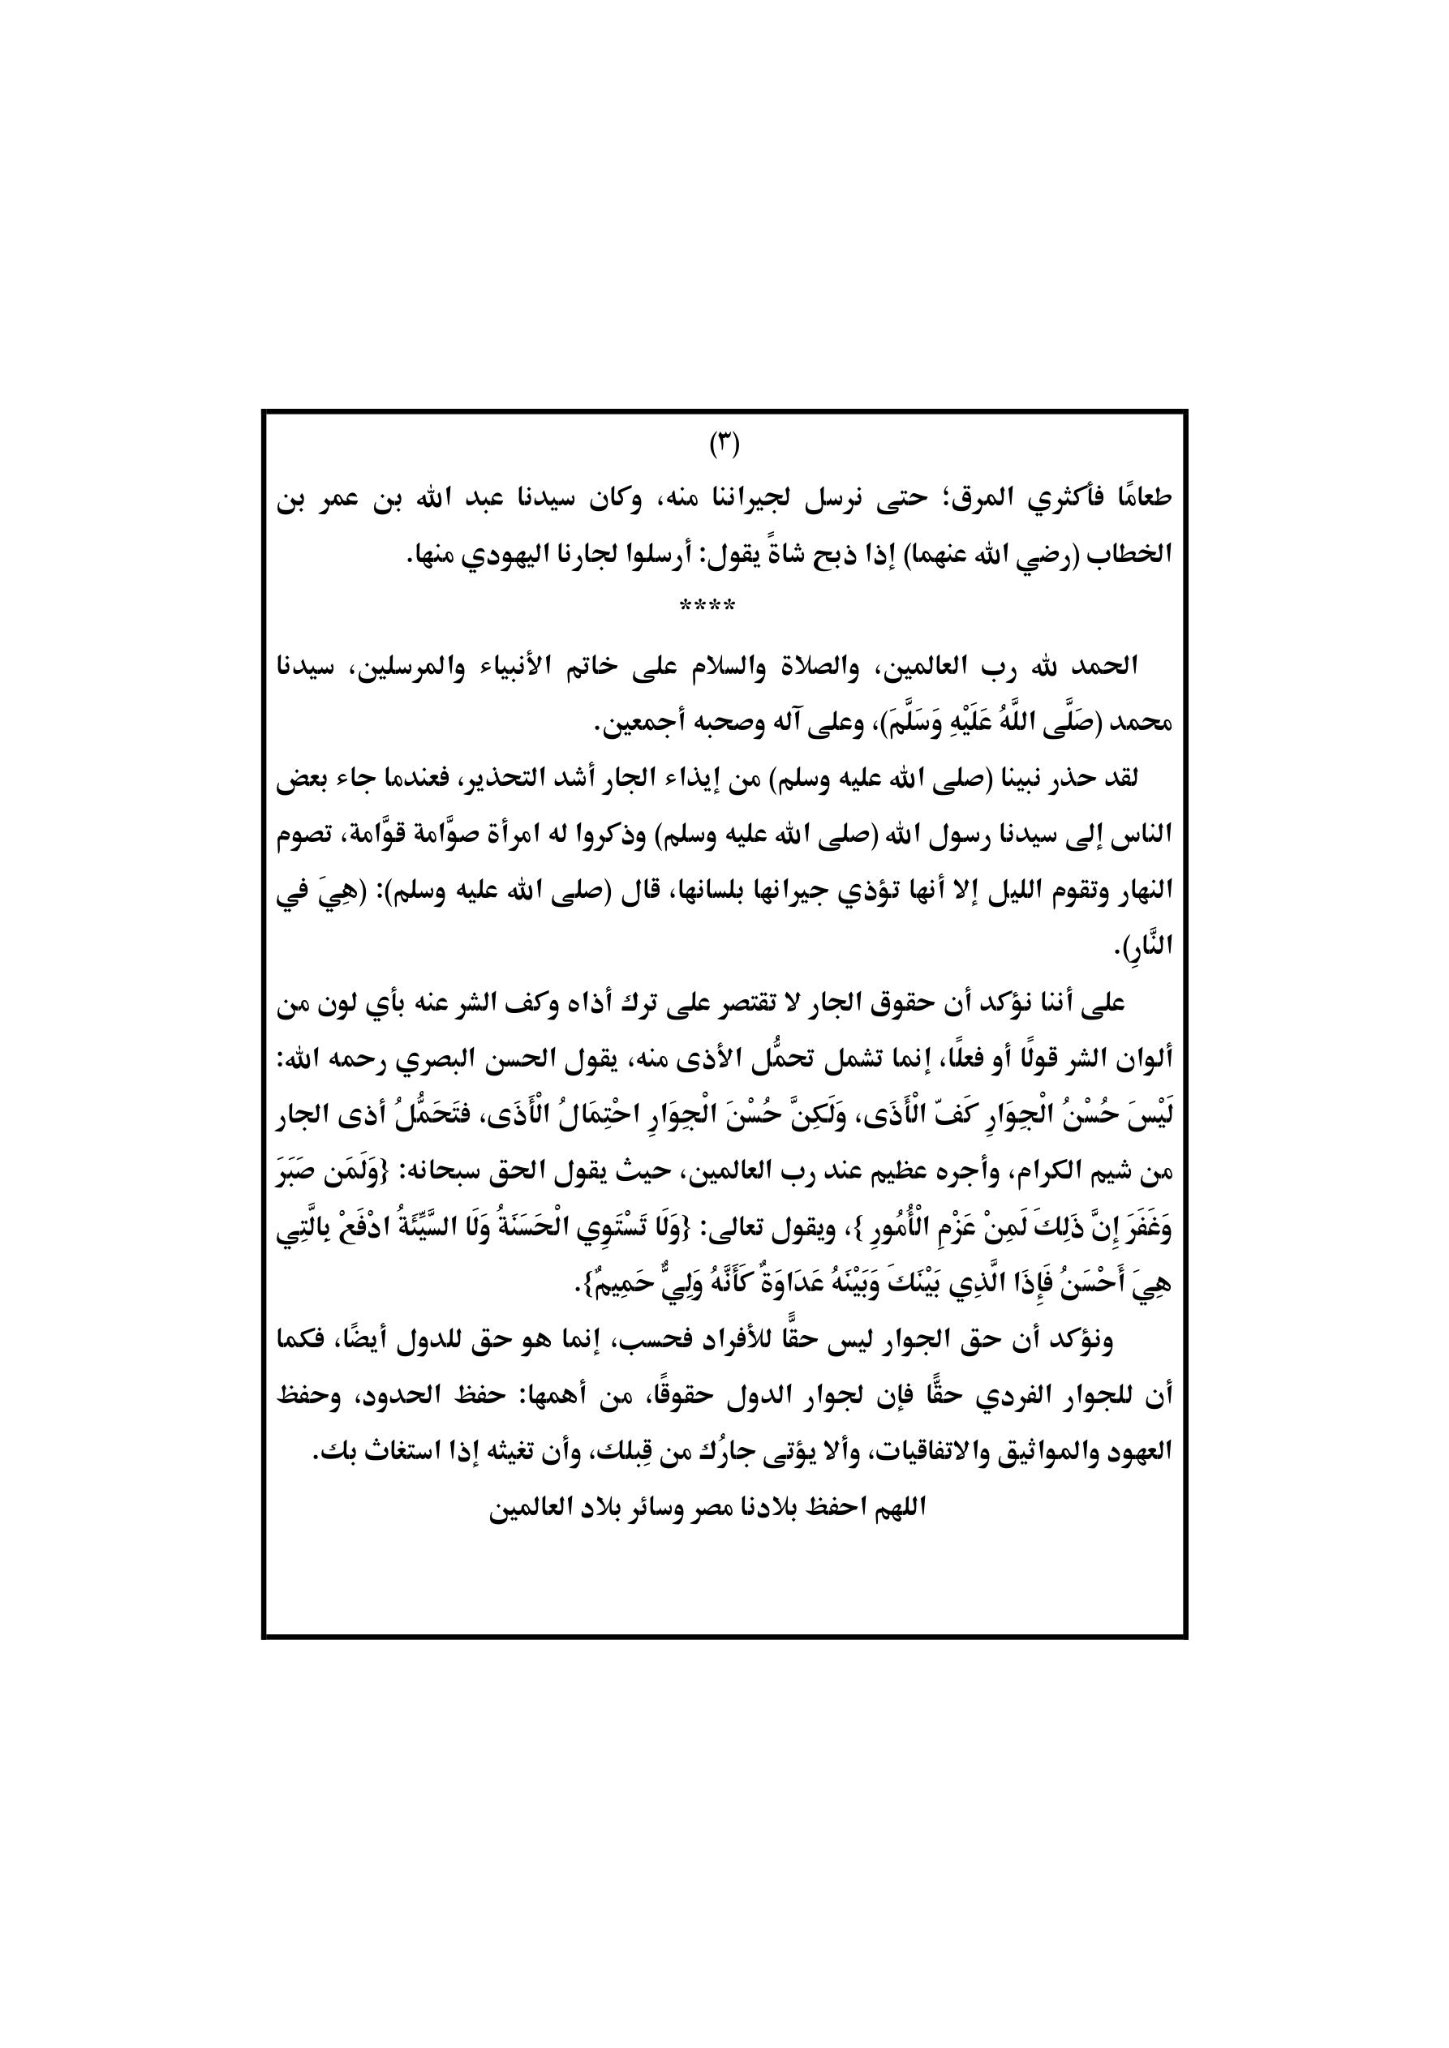 (٣)
طعامًا فأكثري المرق؛ حتى نرسل لجيراننا منه، وكان سيدنا عبد الله بن عمر بن
الخطاب (رضي الله عنهما) إذا ذبح شاةً يقول: أرسلوا لجارنا اليهودي منها.
****
الحمد لله رب العالمين، والصلاة والسلام على خاتم الأنبياء والمرسلين، سيدنا
محمد (صَلَّى اللَّهُ عَلَيْهِ وَسَلَّمَ)، وعلى آله وصحبه أجمعين.
لقد حذر نبينا (صلى الله عليه وسلم) من إيذاء الجار أشد التحذير، فعندما جاء بعض
الناس إلى سيدنا رسول الله (صلى الله عليه وسلم) وذكروا له امرأة صوَّامة قوَّامة، تصوم
النهار وتقوم الليل إلا أنها تؤذي جيرانها بلسانها، قال (صلى الله عليه وسلم): (هِيَ في
النَّارِ).
على أننا نؤكد أن حقوق الجار لا تقتصر على ترك أذاه وكف الشر عنه بأي لون من
ألوان الشر قولًا أو فعلًا، إنما تشمل تحمُّل الأذى منه، يقول الحسن البصري رحمه الله:
لَيْسَ حُسْنُ الْجِوَارِ كَفّ الْأَذَى، وَلَكِنَّ حُسْنَ الْجِوَارِ احْتِمَالُ الْأَذَى، فتَحَمُّلُ أذى الجار
من شيم الكرام، وأجره عظيم عند رب العالمين، حيث يقول الحق سبحانه: {وَلَمَن صَبَرَ
وَغَفَرَ إِنَّ ذَلِكَ لَمِنْ عَزْمِ الْأُمُورِ }، ويقول تعالى: {وَلَا تَسْتَوِي الْحَسَنَةُ وَلَا السَّيِّئَةُ ادْفَعْ بِالَّتِي
هِيَ أَحْسَنُ فَإِذَا الَّذِي بَيْنَكَ وَبَيْنَهُ عَدَاوَةٌ كَأَنَّهُ وَلِيٌّ حَمِيمٌ}.
ونؤكد أن حق الجوار ليس حقًّا للأفراد فحسب، إنما هو حق للدول أيضًا، فكما
أن للجوار الفردي حقًّا فإن لجوار الدول حقوقًا، من أهمها: حفظ الحدود، وحفظ
العهود والمواثيق والاتفاقيات، وألا يؤتى جارُك من قِبلك، وأن تغيثه إذا استغاث بك.
اللهم احفظ بلادنا مصر وسائر بلاد العالمين